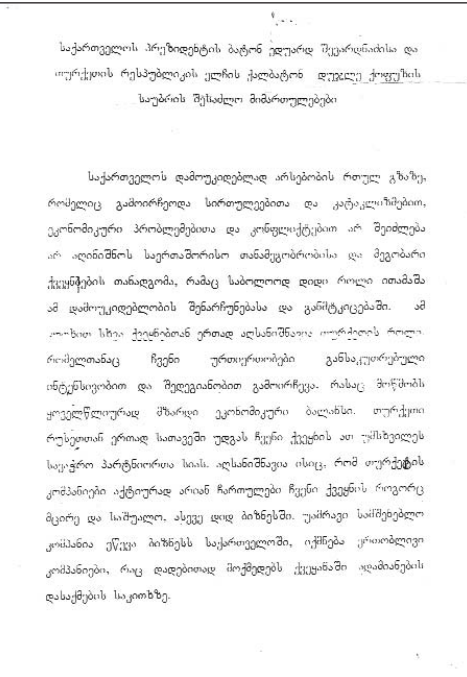 საქართველოს პრეზიდენტის ბატონ ედუარდ შევარდნაძისა და
თურქეთის რესპუბლიკის ელჩის ქალბატონ დუჯლე ქოფუზის
საუბრის შესაძლო მიმართულებები
საქართველოს დამოუკიდებლად არსებობის რთულ გზაზე,
რომელიც გამოირჩეოდა სირთულეებითა და კატაკლიზმებით,
ეკონომიკური პრობლემებითა და კონფლიქტებით არ შეიძლება
არ აღინიშნოს საერთაშორისო თანამეგობრობისა და მეგობარი
ქვეყნების თანადგომა, რამაც საბოლოოდ დიდი როლი ითამაშა
ამ დამოუკიდებლობის შენარჩუნებასა და განმტკიცებაში. ამ
სხვა ქვეყნებთან ერთად აღსანიშნავია თურქეთის როლი.
რომელთანაც ჩვენი ურთიერთობები განსაკუთრებული
ინტენსივობით და შედეგიანობით გამოირჩევა. რასაც მოწმობს
ყოველწლიურად მზარდი ეკონომიკური ბალანსი. თურქეთი
რუსეთთან ერთად სათავეში უდგას ჩვენი ქვეყნის ათ უმსხვილეს
სავაჭრო პარტნიორთა სიას. აღსანიშნავია ისიც, რომ თურქეტის
კომპანიები აქტიურად არიან ჩართულები ჩვენი ქვეყნის როგორც
მცირე და საშუალო, ასევე დიდ ბიზნესში. უამრავი სამშენებლო
კომპანია ეწევა ბიზნესს საქართველოში, იქმნება ერთობლივი
კომპანიები, რაც დადებითად მოქმედებს ქვეყანაში ადამიანების
დასაქმების საკითხზე.